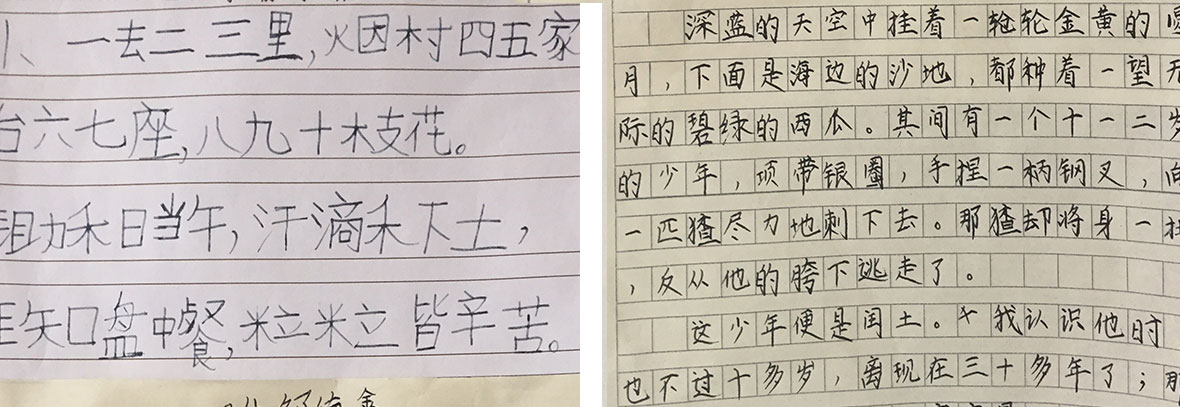 一去二三里，火因木寸四五家
台六七座，八九十枝花。
锄禾日当午，汗滴禾下土，
知口盘中餐，粒粒皆辛苦。
深蓝的天空中挂着一轮金黄的圆
月，下面是海边的沙地，都种着一望无
际的碧绿的西瓜。其间有一个十一二岁
的少年，项带银圈，手捏一柄钢叉，向
一匹猹尽力地刺下去。那猹却将身一扭
，反从他的胯下逃走了。
这少年便是闰土。我认识他时
也不过十多岁，离现在三十多年了；那